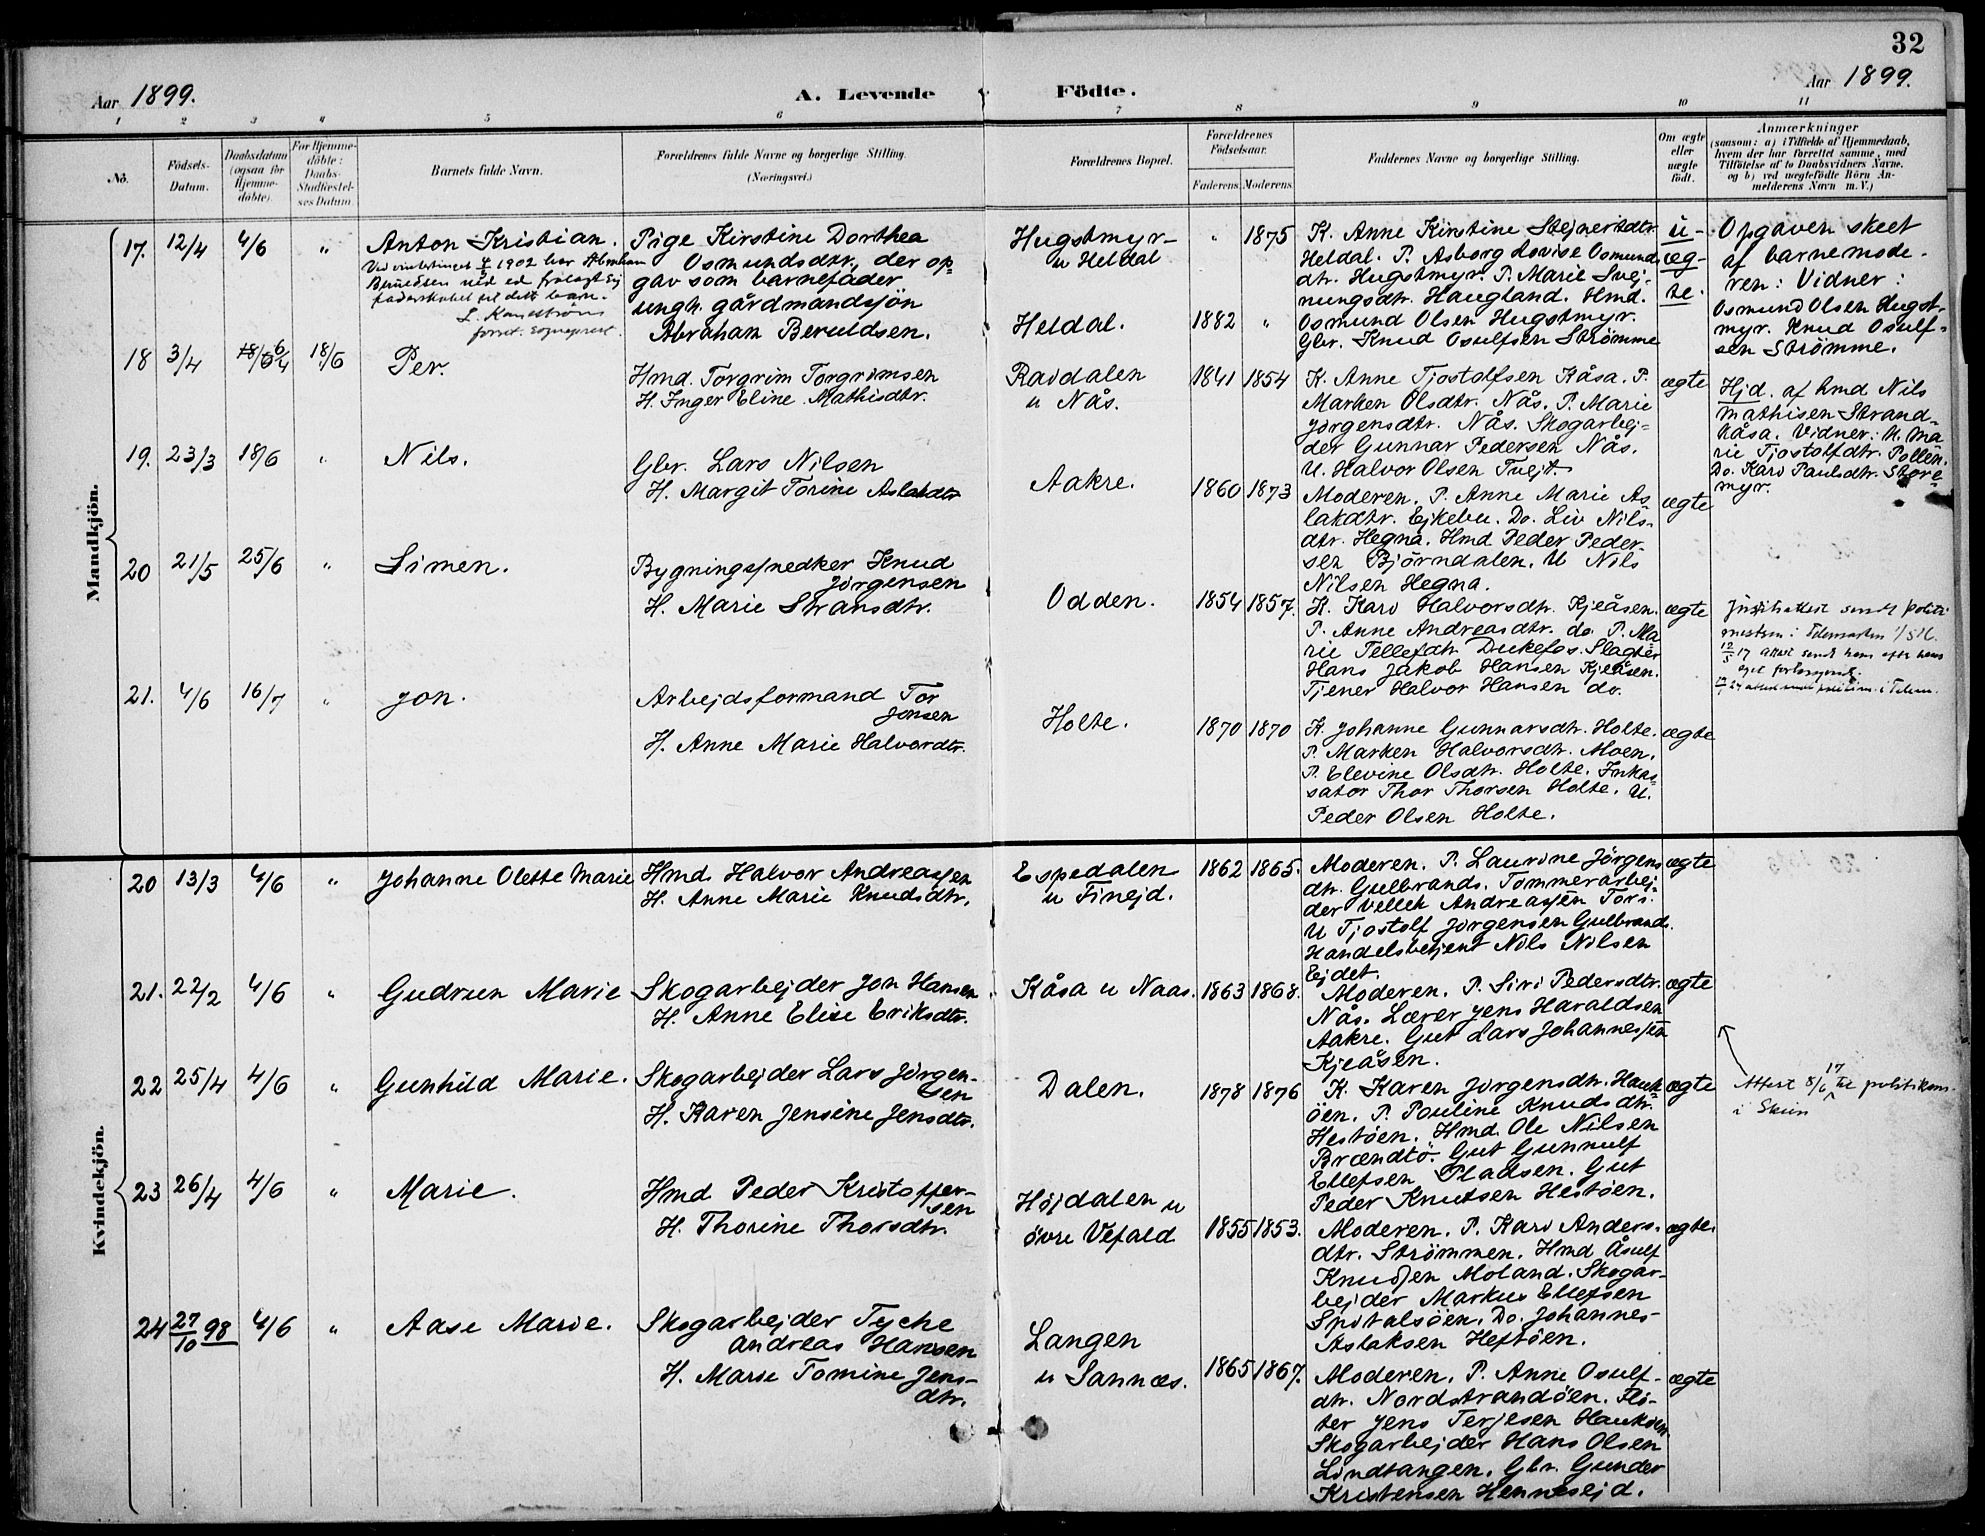 32
Aar 1899.
A. Levende Födte.
Aar 1899.
1 2 3 4 5 6 7 8 9 10 11
No.
Födsels-
Datum.
Daabsdatum
(ogsaa for
Hjemme-
döbte).
For Hjemme-
döbte:
Daabs-
Stadfæstel-
ses Datum.
Barnets fulde Navn.
Forældrenes fulde Navne og borgerlige Stilling.
(Næringsvei.)
Forældrenes Bopæl.
Forældrenes
Födselsaar.
Faderens. Moderens.
Faddernes Navne og borgerlige Stilling.
Om ægte
eller
uægte
födt.
Anmærkninger
(saasom: a) i Tilfælde af Hjemmedaab,
hvem der har forrettet samme, med
Tilföielse af to Daabsvidners Navne.
og b) ved uægtefödte Börn An-
melderens Navn m. V.)
Mandkjön.
17. 12/4 4/6 "
Anton Kristian.
Ved vintertinget 1902 har Abraham
Beruldsen ved ed fralagt sig
faderskabet til dette barn.
const. sogneprest.
Pige Kirstine Dorthea
Osmundsdtr., der op-
gav som barnefader
ungk. gårdmandsjön
Abraham Beruldsen.
Hugstmyr-
u Heldal
Heldal.
" 1875
1882 "
K. Anne Kirstine Stejnertdtr
Heldal. P. Asborg Lovise Osmund
dtr. Hugstmyr. P. Marie Svej-
nungsdtr. Haugland. Hmd.
Osmund Olsen Hugstmyr.
Gbr. Knud Osulfsen Strömme
u-
æg-
te.
Opgaven skeet
af barnemode-
ren: Vidner:
Osmund Olsen Hugst-
myr. Knud Osulf-
sen Strömme.
18 3/4 6/4 18/6
Per.
Hmd. Torgrim Torgrimsen
H. Inger Eline Mathisdtr.
Raodalen
u Nås.
1841 1854
K. Anne Tjostolfsen Kåsa. P.
Marken Olsdtr. Nås. P. Marie
Jörgensdtr. Nås. Skogarbej-
der Gunnar Pedersen Nås.
U. Halvor Olsen Tvejt.
ægte
Hjd. af hmd Nils
Mathisen Strand-
kåsa. Vidner: K. Ma
rie Tjostolfdtr. Pollen.
Do. Karo Paulsdtr. Store-
myr.
19. 23/3 18/6 "
Nils.
Gbr. Lars Nilsen
H. Margit Torine Aslakdtr
Aakre.
1860 1873
Moderen. P. Anne Marie As-
lakdtr. Ejkebu. Do. Liv Nils-
dtr. Hegna. Hmd Peder Peder-
sen Björndalen. U Nils
Nilsen Hegna.
ægte
20 21/5 25/6 "
Simen.
Bygningssnedker Knud
Jörgensen
H. Marie Svansdtr.
Odden.
1854 1857.
K. Karo Halvorsdtr. Kjeåsen.
P. Anne Andreasdtr. do. P. Ma
rie Tellefdtr Dukefos. Slagter
Hans Jakob Hansen Kjeåsen.
Tjener Halvor Hansen do.
ægte
sendt politi
mesteren i Telemarken
12/5 17 attest sendt ham efter hans
eget forlangende.
21. 4/6 16/7 "
Jon.
Arbejdsformand Tor
Jonsen
H. Anne Marie Halvordtr.
Holte.
1870 1870
K. Johanne Gunnarsdtr. Holte.
P. Marken Halvorsdtr. Moen.
P. Elevine Olsdtr. Holte. Inkas-
sator Thor Thorsen Holte. U.
Peder Olsen Holte.
ægte
Kvindekjön.
20 13/3 4/6 "
Johanne Olette Marie
Hmd. Halvor Andreassen
H. Anne Marie Knudsdtr.
Espedalen
u Finejd.
1862 1865.
Moderen. P. Laurine Jörgens
dtr. Gulbrands. Tömmerarbej-
der Vellek Andreassen Tors.
U Tjostolf Jörgensen Gulbrands.
Handelsbetjent Nils Nilsen
Ejdet.
ægte
21. 22/2 4/6 "
Gudrun Marie
Skogarbejder Jon Hansen
H. Anne Elise Eriksdtr.
Kåsa u Naas.
1863 1868.
Moderen. P. Siri Pedersdtr.
Nås. Lærer Jens Haraldsen
Aakre. Gut Lars Johannessen
Kjeåsen.
ægte
22 25/4 4/6 "
Gunhild Marie.
Skogarbejder Lars Jörgen-
sen
H. Karen Jensine Jensdtr.
Dalen.
1878 1876
K. Karen Jörgensdtr. Hauk-
öen. P. Pauline Knudsdtr.
Hestöen. Hmd. Ole Nilsen
Brændtö. Gut Gunnulf
Ellefsen Pladsen. Gut
Peder Knutsen Hestöen.
ægte
Attest 8/6 17 til politikam.
i Skien
23 26/4 4/6 "
Marie.
Hmd Peder Kristoffer-
sen
H. Thorine Thorsdtr.
Höjdalen u
övre Vefald
1855 1853.
Moderen. P. Karo Anders-
dtr. Strömmen. Hmd Åsulf
Knudsen Moland. Skogar-
bejder Markus Ellefsen
Spitalsöen. Do. Johannes-
Aslaksen Heftöen.
ægte.
24 27/10 98 4/6 "
Aase Marie.
Skogarbejder Tyche
Andreas Hansen
H. Marie Tomine Jens-
dtr.
Langen
u Sannæs.
1865 1867.
Moderen. P. Anne Osulf-
dtr. Nordstrandöen. Flö-
ter Jens Terjesen Hauköen
Skogarbejder Hans Olsen
Lindtangen. Gbr. Gunder
Kristensen Hennesejd.
ægte